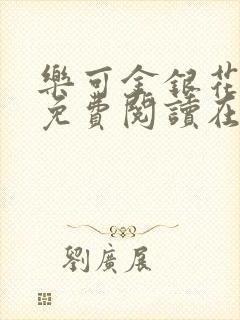 樂可金銀花
免費閱讀在
劉廣展